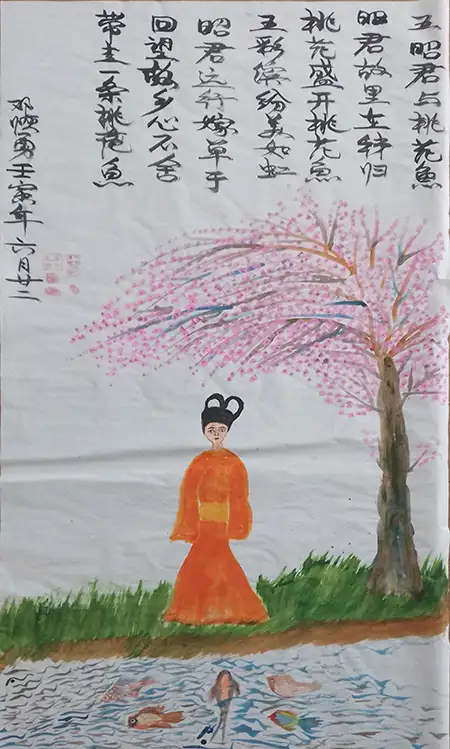 王昭君与桃花魚
昭君故里在秭归
桃花盛开桃花魚
五彩缤纷美如虹
昭君远行嫁单于
回望故乡心不舍
带走一条桃花魚
邓勇壬寅年六月廿二